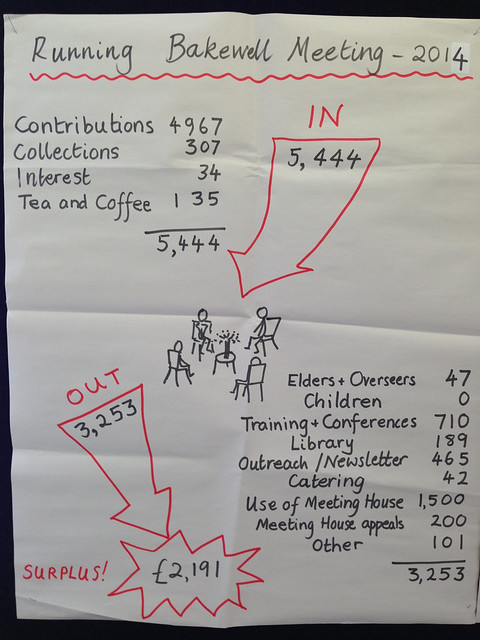 Running Bakewell Meeting - 2014
IN
5,444
Contributions 4967
Collections 307
Interest 34
Tea and Coffee 135
5,444
OUT
3,253
Elders + Overseers 47
Children 0
Training + Conferences 710
Library 189
Outreach / Newsletter 465
Catering 42
Use of Meeting House 1,500
Meeting House appeals 200
Other 101
3,253
SURPLUS!
£2,191